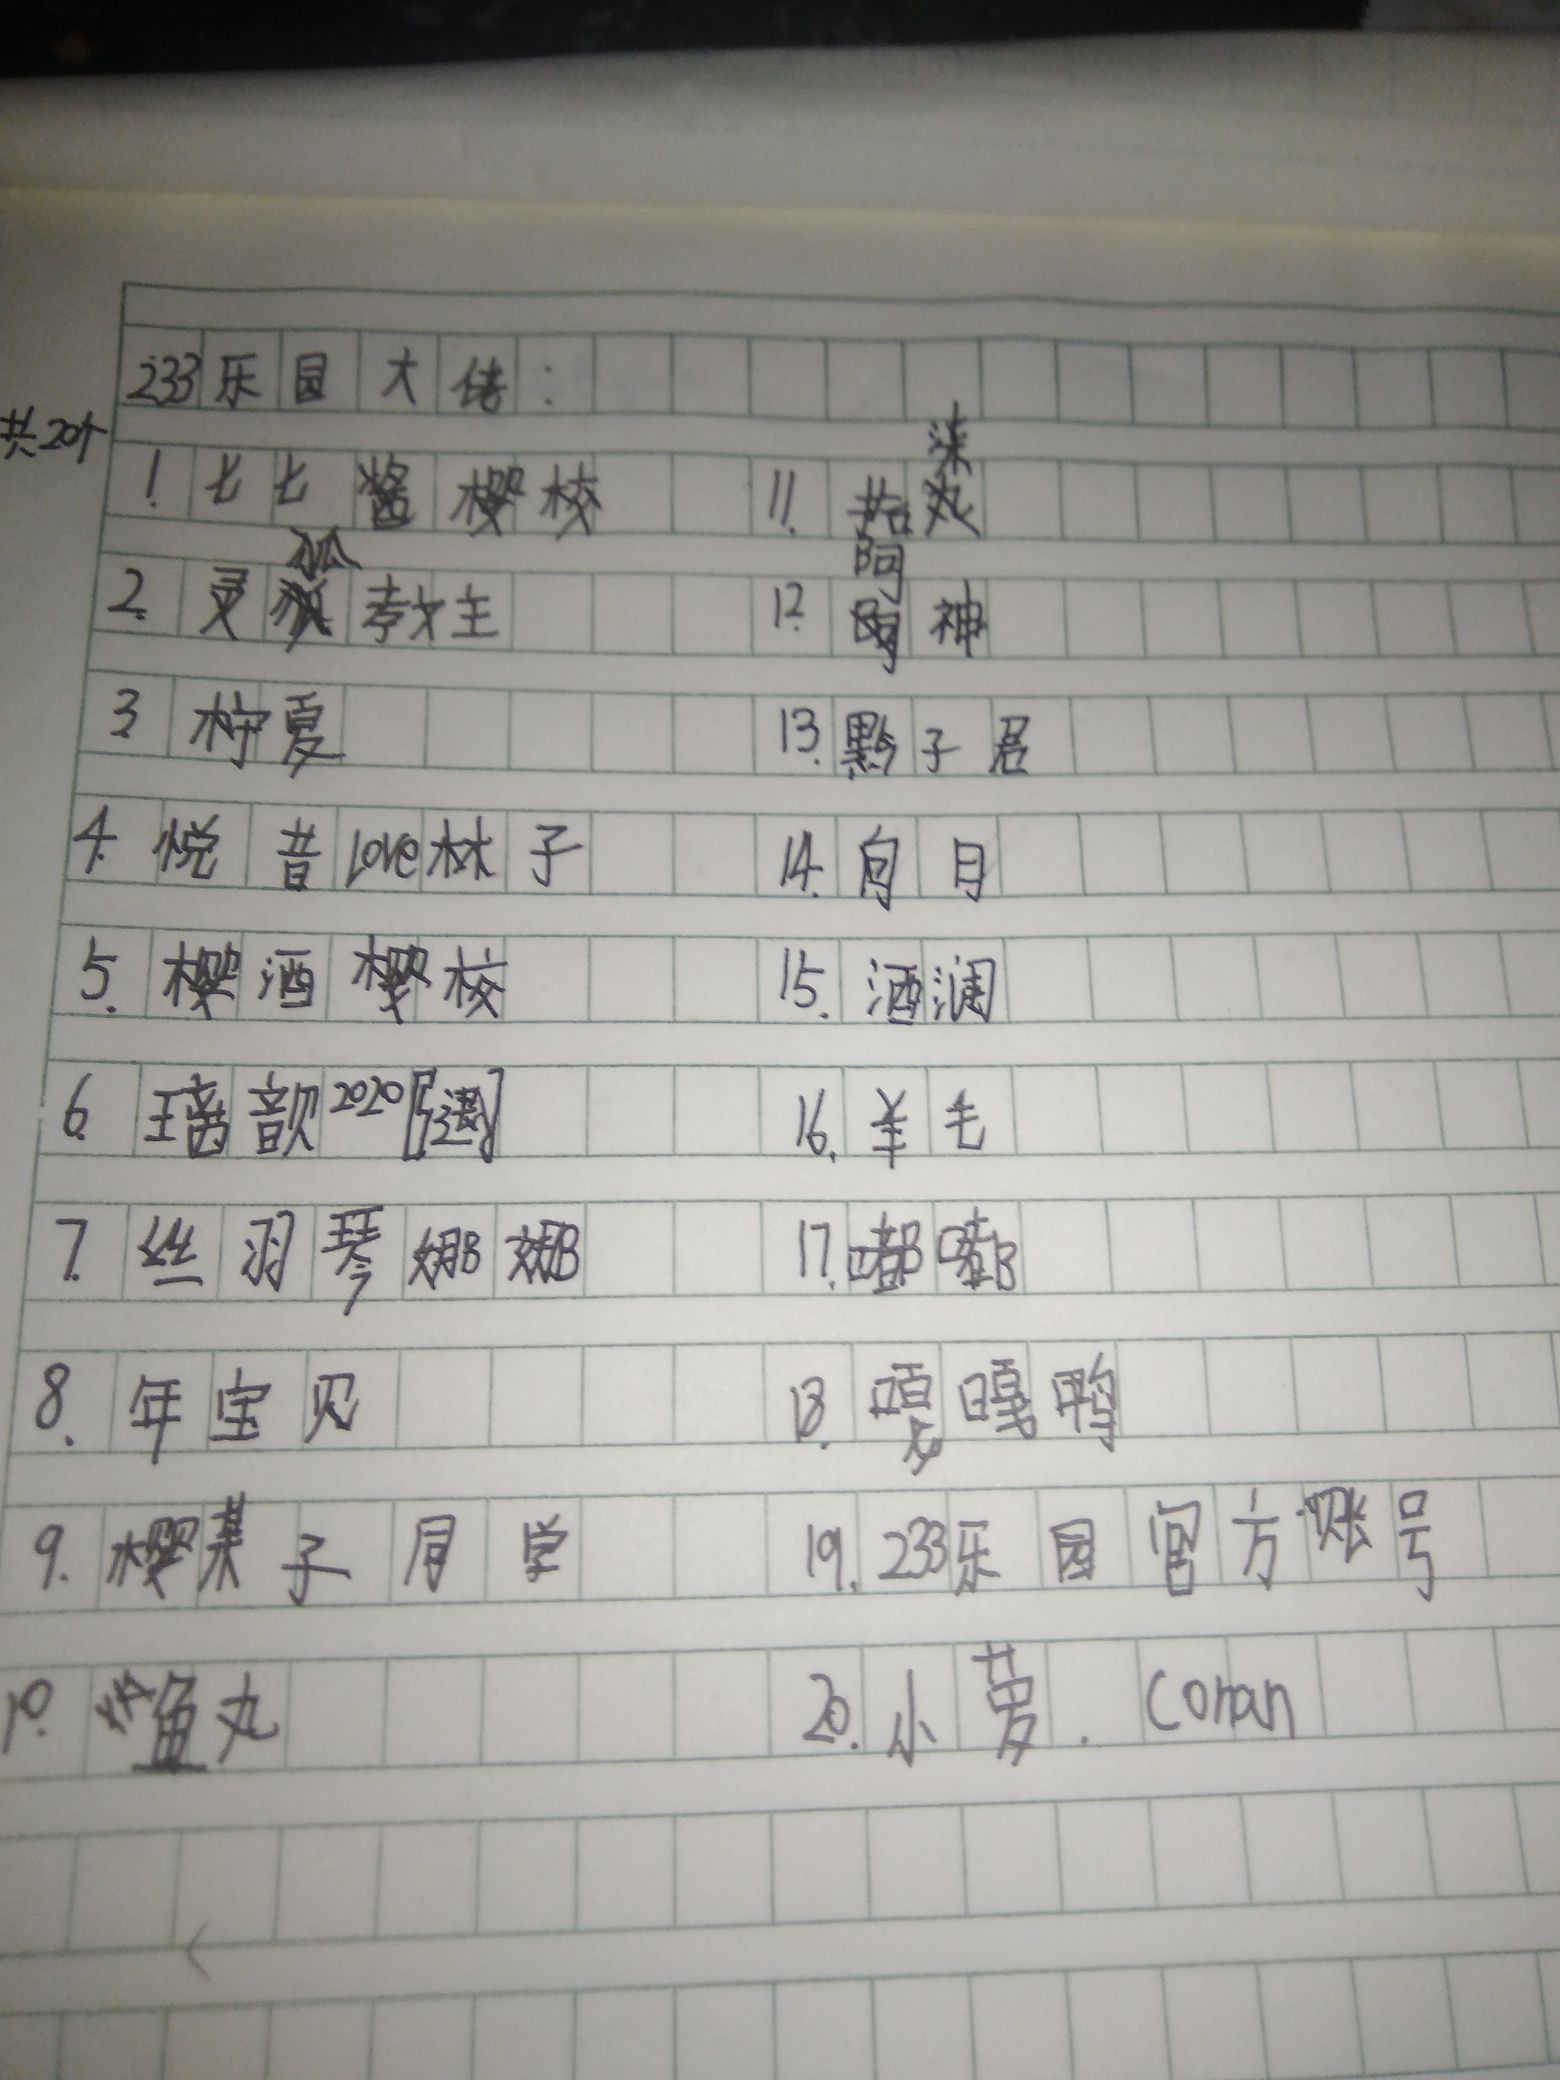 233乐园大佬:
共20个
1. 七七酱樱校
2. 灵狐教主
3. 柠夏
4. 悦昔Love林子
5. 樱酒樱校
6. 璃歆2020
7. 丝羽琴娜娜
8. 年宝贝
9. 樱菓子同学
10. 鱼丸
11. 柒
12. 阿神
13. 黔子君
14. 自日
15. 酒澜
16. 羊毛
17. 嘟嘟
18. 嘎嘎鸭
19. 233乐园官方账号
20. 小萝. Conan